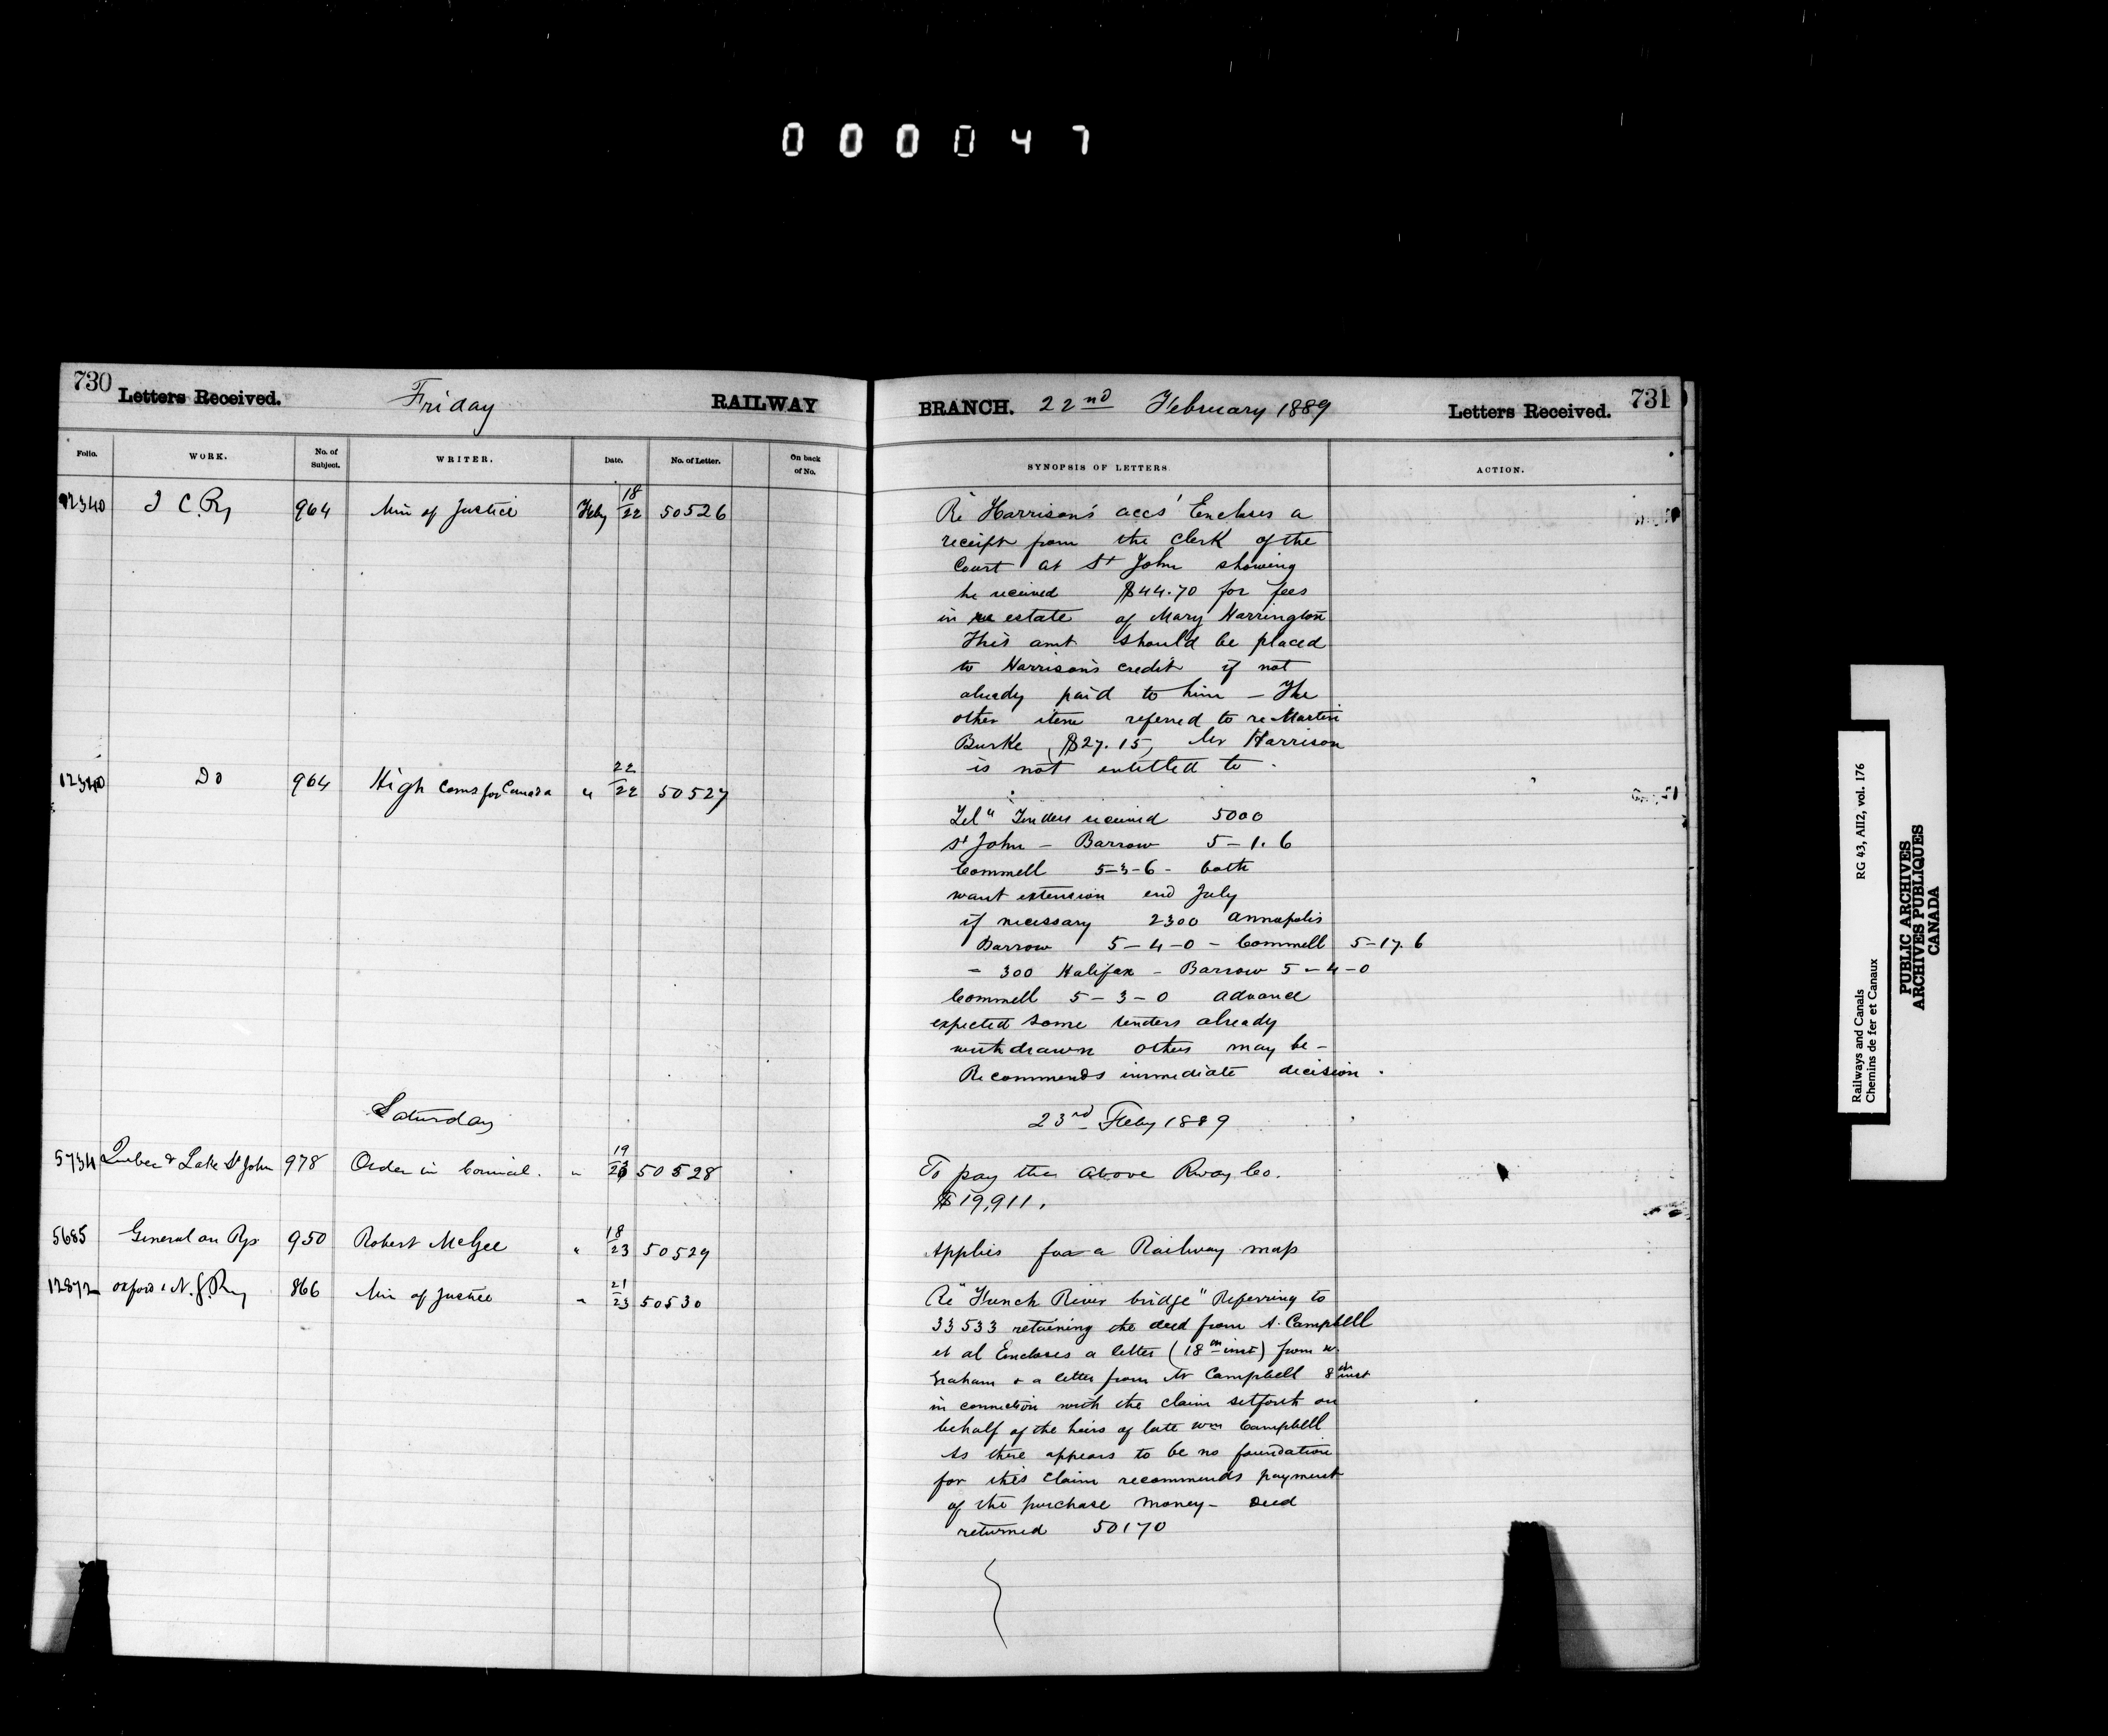 000047
730 Letters Received. Friday RAILWAY
BRANCH. 22nd February 1889 Letters Received. 731
Folio. WORK. No. of Subject. WRITER. Date. No. of Letter. On back of No.
SYNOPSIS OF LETTERS. ACTION.
12340 I C. Ry 964 Min of Justice Feby 18/22 50526
Re Harrison's accs' Encloses a
receipt from the Clerk of the
Court at St John showing
he received $44.70 for fees
in re estate of Mary Harrington
This amt should be placed
to Harrison's credit if not
already paid to him – The
other item referred to re Martin
Burke, $27.15, Mr Harrison
is not entitled to.
12340 Do 964 High Coms for Canada " 22/22 50527
Tel" Tenders received 5000
St John – Barrow 5–1.6
Cammell 5–3–6 – both
want extension end July
if necessary 2300 Annapolis
Barrow 5–4–0 – Cammell 5–17.6
– 300 Halifax – Barrow 5–4–0
Cammell 5–3–0 advance
expected some tenders already
withdrawn others may be –
Recommends immediate decision.
Saturday 23rd Feby 1889
5734 Quebec & Lake St John 978 Order in Council. " 19/23 50528
To pay the above Rway Co.
$19,911.
5685 General on Rys 950 Robert McGee " 18/23 50529
Applies for a Railway map
12872 Oxford & N. G. Ry 866 Min of Justice " 21/23 50530
Re "French River bridge" Referring to
33533 retaining the deed from A. Campbell
et al Encloses a letter (18th inst) from W.
Graham & a letter from Mr Campbell 8th inst
in connection with the claim setforth on
behalf of the heirs of late Wm Campbell
As there appears to be no foundation
for this claim recommends payment
of the purchase money – Deed
returned 50170
Railways and Canals RG 43, AII2, vol. 176
Chemins de fer et Canaux
PUBLIC ARCHIVES
ARCHIVES PUBLIQUES
CANADA